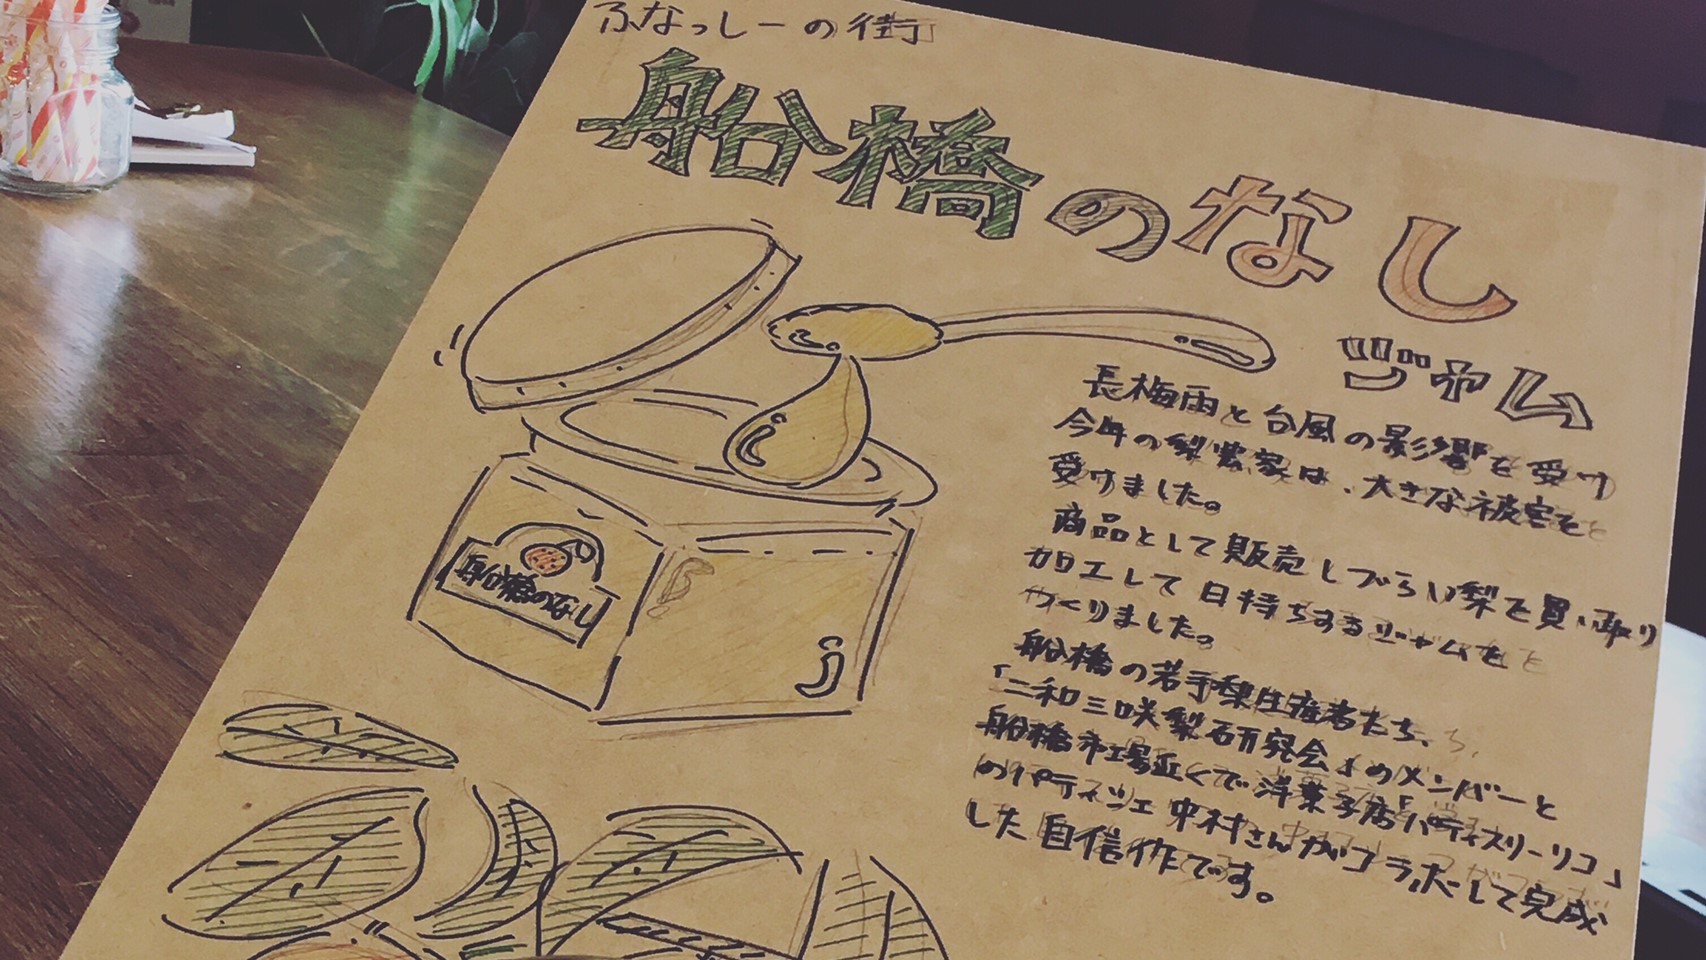 ふなっしーの街
船橋のなし
ジャム
長梅雨と台風の影響を受け
今年の梨農家は、大きな被害を
受けました。
商品として販売しづらい梨を買い取り
加工して日持ちするジャムを
つくりました。
船橋の若手梨生産者たち、
「二和三咲梨研究会」のメンバーと
船橋市場近くで洋菓子店「パティスリーリコ」
のパティシエ中村さんがコラボして完成
した自信作です。
船橋のなし